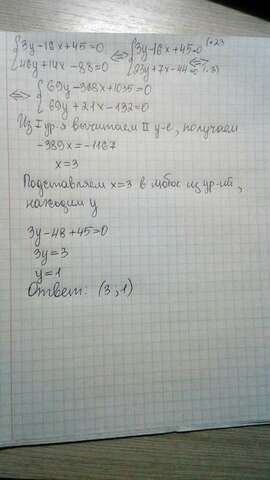 {3y-16x+45=0 <=> {3y-16x+45=0 |·23
{46y+14x-88=0 {23y+7x-44=0 |·3
<=> {69y-368x+1035=0
{69y+21x-132=0
Из I ур-я вычитаем II у-е, получаем
-389x=-1167
x=3
Подставляем x=3 в любое из ур-ий,
находим y
3y-48+45=0
3y=3
y=1
Ответ: (3,1)